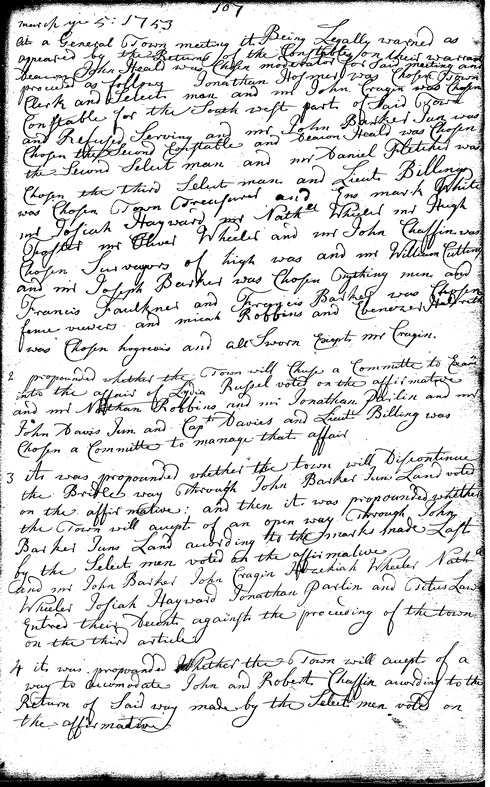 107
march ye 5: 1753
At a General Town meeting it Being Legally warned as
appeared by the Return of the Constables on their warrant
Deacon John Heald was Chosen moderator for Said meeting and
proceed as follows Jonathan Hosmer was Chosen Town
Clerk and Select man and mr John Cragin was Chosen
Constable for the South west part of Said Town
and Refused Serving and mr John Barker Jun was
Chosen the Second Constable and Deacon Heald was Chosen
the Second Select man and mr Daniel Fletcher was
Chosen the third Select man and Lieut Billing
was Chosen Town Treasurer and Ens mark White
mr Josiah Hayward mr Nathll Wheeler mr Hugh
mr Oliver Wheeler and mr John Chaffin was
Chosen Survayors of high was and mr William Cutting
and mr Joseph Barker was Chosen Tything men and
Francis Faulkner and Francis Barker was Chosen
fence viewers and micah Robbins and Ebenezer
was Chosen hogreevs and all Sworn Except mr Cragin.
2 propounded whether the Town will Chuse a Committe to Exam
into the affair of Lydia Russel voted on the affirmative
and mr Nathan Robbins and mr Jonathan Parlin and mr
John Davis Jun and Capt Davies and Lieut Billing was
Chosen a Committe to manage that affair
3 it was propounded whether the town will Discontinue
the Bridle way Through John Barker Juns Land voted
on the affirmative: and then it was propounded whether
the Town will acept of an open way Through John
Barker Juns Land according to the marks made Last
by the Select men voted on the affirmative
and mr John Barker John Cragin Hezekiah Wheeler Nathll
Wheeler Josiah Hayward Jonathan Parlin and Titus Law
Entred their Decent against the proceeding of the town
on the third article
4 it was propounded Whether the Town will acept of a
way to acomodate John and Robert Chaffin acording to the
Return of Said way made by the Select men voted on
the affirmative